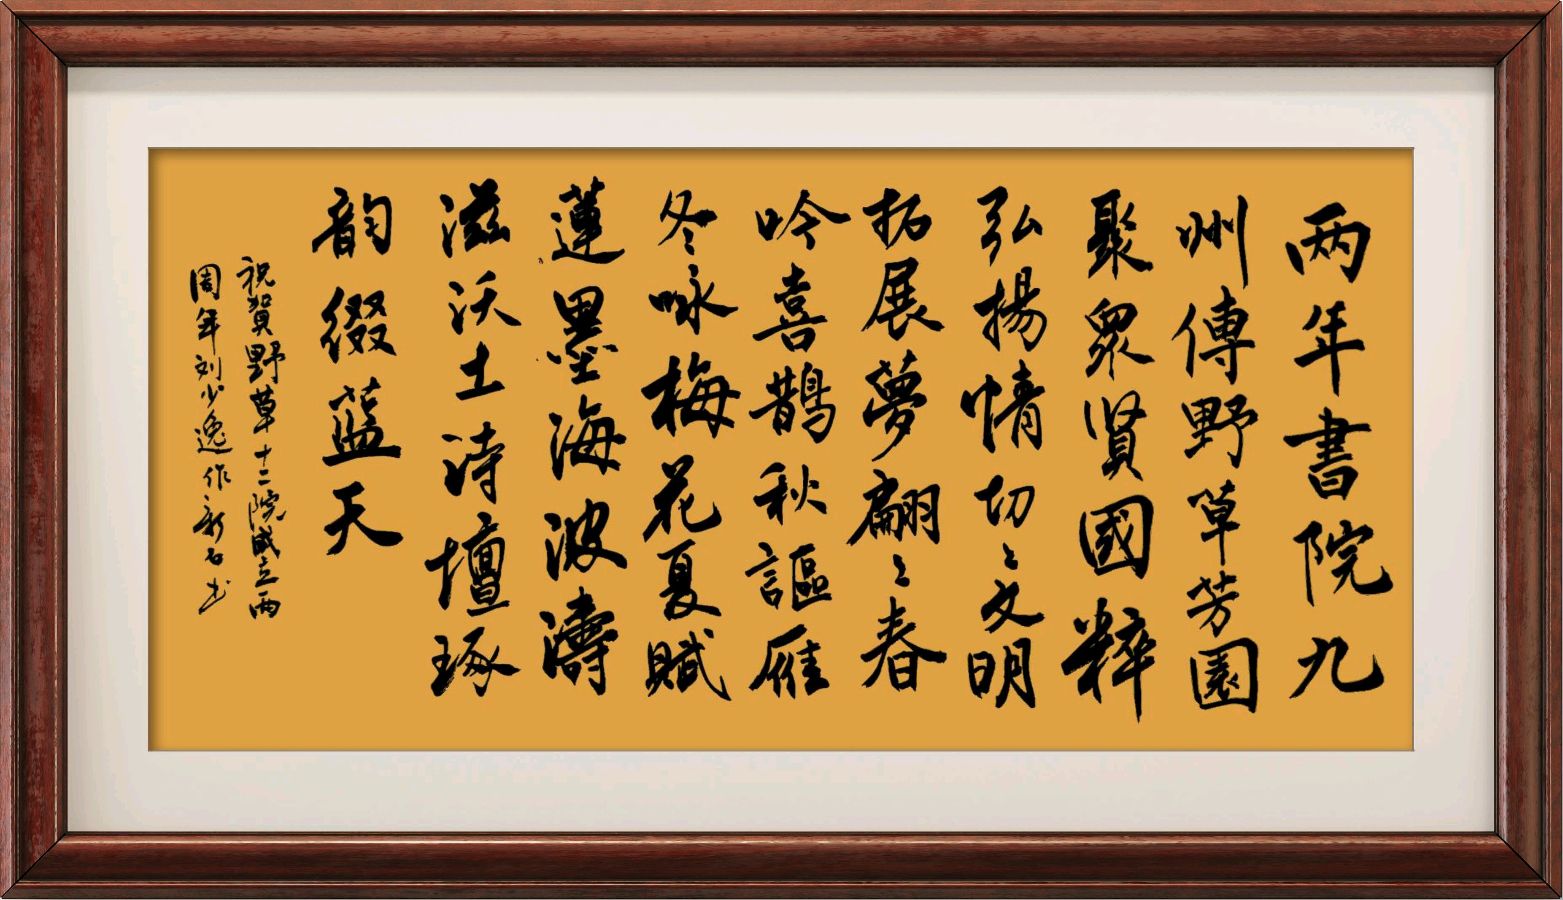 两年書院九
州傳野草芳園
聚衆賢國粹
弘揚情切〻文明
拓展夢翩〻春
吟喜鹊秋謳雁
冬咏梅花夏賦
蓮墨海波濤
滋沃土诗壇琢
韵缀藍天
祝賀野草十二院成立兩
周年刘少逸作新石书